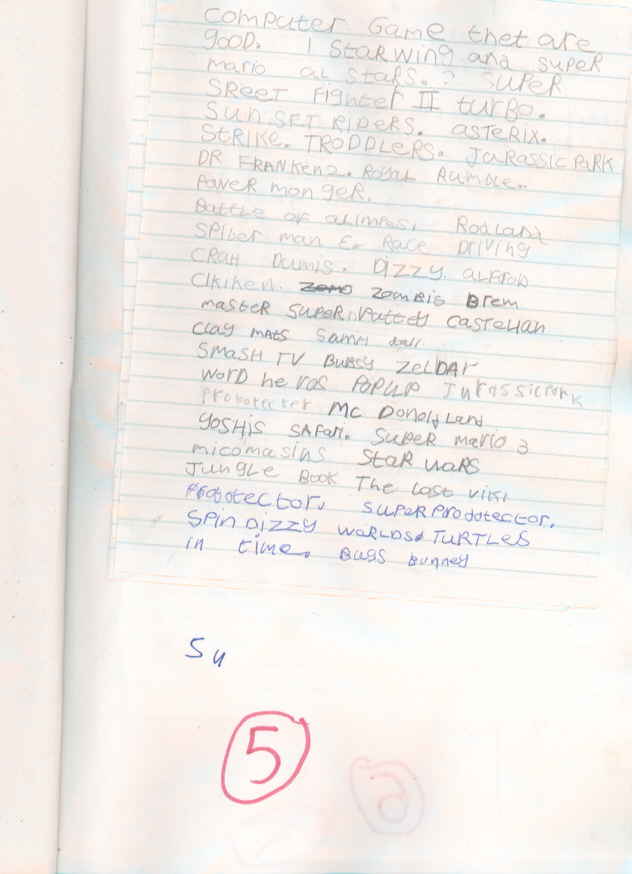 Computer Game thet are
good. 1 STARWing and super
Mario al STARS. ? SUPER
SReet Fighter II turbo.
SUNSET RIDERS. ASTERIX.
STRIKE. TRODDLERS. JURASSIC PARK
DR FRANKEN2. Royal Rumble.
Power monger.
Battle of olimpos. Rodland
SPIDER man Ex Race DRIVING
CRAH Dumis. Dizzy.
Zombie Brem
master SUPER Puttey CASTELIAN
Clay mats Samm
SMASH TV Bubsy ZELDAr
Word he ros POPUP Jurassicpark
Probotecter MC Donely Land
YOSHIS SAFARI. Super mario 3
micomasins STAR WARS
Jungle Book The Lost viki
Probotector. SUPERProdotector.
SPIN DIZZY WORLDS TURTLES
in time. Bugs Bunney
Su
5